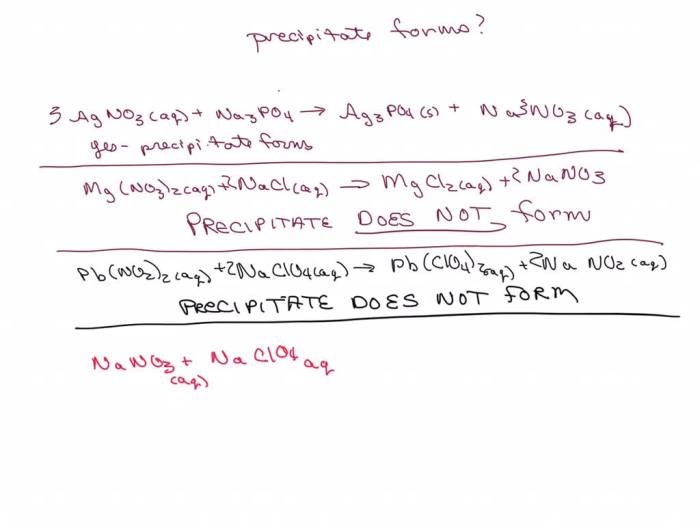 precipitate forms?
3 AgNO3(aq) + Na3PO4 → Ag3PO4(s) + Na3NO3(aq)
yes - precipitate forms
Mg(NO3)2(aq) + 2NaCl(aq) → MgCl2(aq) + 2NaNO3
PRECIPITATE DOES NOT form
Pb(NO2)2(aq) + 2NaClO4(aq) → Pb(ClO4)2(aq) + 2Na NO2(aq)
PRECIPITATE DOES NOT FORM
NaNO3 + NaClO4 aq
(aq)